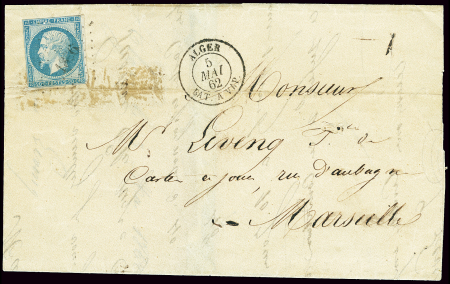 EMPIRE FRANC.
ALGER
5
MAI
62
BAT. A VAP.
Monsieur
Mr Leveng f. de
Cartes à jouer, rue d'aubagne
Marseille